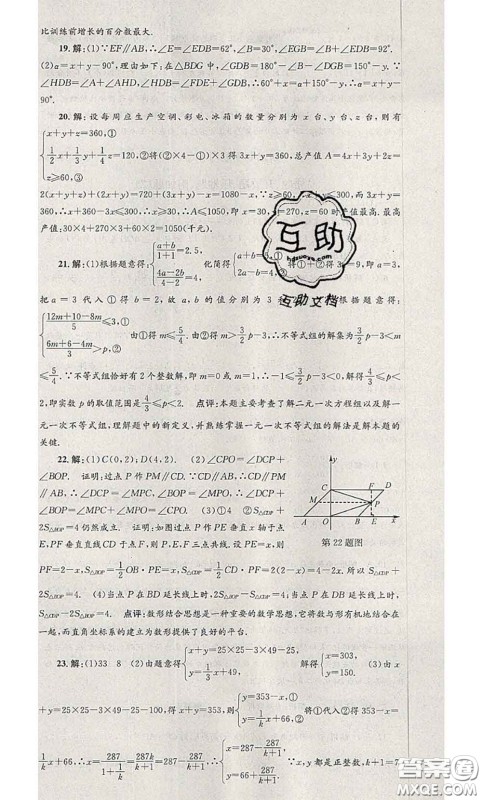 比训练前增长的百分数最大.
19.解:(1)∵EF∥AB,∴∠E=∠EDB=62°,∠B=30°,∠EGB=∠B+∠EDB=92°.
(2)α=x+y-90°,理由如下:在△BDG中,∠HDB=180°-∠B-∠DGB=150°-y.∵
∠HDB=∠A+∠HFD,∠A+∠HFD+α=180°,∴60°+x+α=180°+150°-y,∴α=x+y-
90°.
20.解:设每周应生产空调、彩电、冰箱的数量分别为x台、y台、z台,则有
{x+y+z=360,①
1/2x+1/3y+1/4z=120,②将(②×4-①)×3得3x+y=360,总产值A=4x+3y+2z=
z≥60,③
2(x+y+z)+(2x+y)=720+(3x+y)-x=1080-x,∵z≥60,∴x+y≤300,而3x+y=
360,∴x+360-3x≤300,∴x≥30,∴A≤1050,即x=30,y=270,z=60时产值最高.最高
产值:30×4+270×3+60×2=1050(千元).
21.解:(1)根据题意得:{(a+b)/(1+1)=2.5, (4a-2b)/(4-2)=4, 化简得{a+b=5,① 2a-b=4,② 将①+②得3a=9,即a=3,
把a=3代入①得b=2,故a,b的值分别为3 根据题意得:
{(12m+10-8m)/5≤3,① (6m+6-4m)/3>p,② 由①得m≤5/4.由②得m>3/2p-3,∴不等式组的解集为3/2p-3<m
≤5/4.∵不等式组恰好有2个整数解,即m=0或m=1,∴-1≤3/2p-3<0,解得4/3≤p<
2,即实数p的取值范围是4/3≤p<2. 点评:本题主要考查了解二元一次方程组以及解一
元一次不等式组,理解题中的新定义,并熟练掌握一元一次不等式组的解法是解本题的
关键.
22.解:(1)C(0,2);D(4,2). (2)∠CPO=∠DCP+
∠BOP. 证明:过点P作PM∥CD.∵CD∥AB,∴CD∥PM
∥AB,∴∠MPC=∠DCP,∠MPO=∠BOP,∴∠CPO=
∠MPC+∠MPO=∠DCP+∠BOP. (3)①4 ②S△CDP+
2S△BOP=4仍然成立. 证明:如图过点P作PE垂直x轴于点
E,PF垂直直线CD于点F,则P、E、F三点共线.设PE=x,则
y
C F D
M P
A O B E x
第22题图
PF=2-x,S△BOP=1/2OB·PE=x,S△CDP=1/2CD×PF=2(2-x)=4-2x.所以S△CDP+
2S△BOP=4. (4)当点P在BD延长线上时,S△CDP-2S△BOP=-4;当点P在DB延长线上时,
S△CDP-2S△BOP=4. 点评:数形结合思想是一种重要的数学思想,它将数与形有机地结合在
一起,而直角坐标系的建立为数形提供了良好的平台.
23.解:(1)33 8 (2)由题意得{x+y=25×25-3×49-25-100, y=1/3x+49, 解得{x=303, y=150. (3)由x
+y=25×25-3×49-25-100,得y=353-x,∴{y=353-x,① y=1/kx+66,② 将①代入②得353-x=
1/kx+66,∴x=287/(1/k+1)=287k/(k+1)=287-287/(k+1),∴{x=287-287/(k+1), y=66+287/(k+1) ∵x,y都是正整数,k+1=7
互助
hgzuowu.com
互助文档
答案圈
MXQE.COM